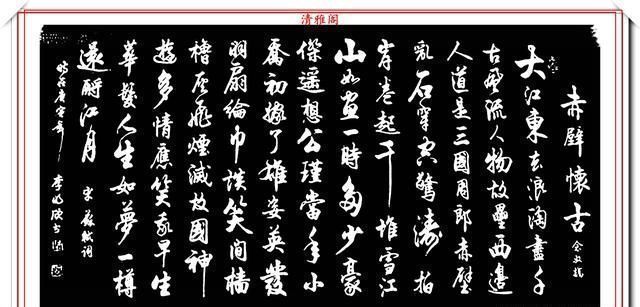 清雅阁
赤壁懷古
大江東去浪淘盡千
古風流人物故壘西邊
人道是三國周郎赤壁
亂石穿空驚濤拍
岸卷起千堆雪江
山如畫一時多少豪
傑遥想公瑾當年小
喬初嫁了雄姿英發
羽扇綸巾談笑間檣
櫓灰飛煙滅故國神
遊多情應笑我早生
華髮人生如夢一樽
還酹江月 宋蘇軾詞
時在庚寅年